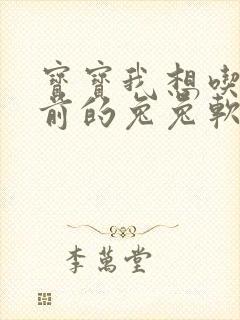 寶寶我想喫
前的兔兔軟
李萬堂